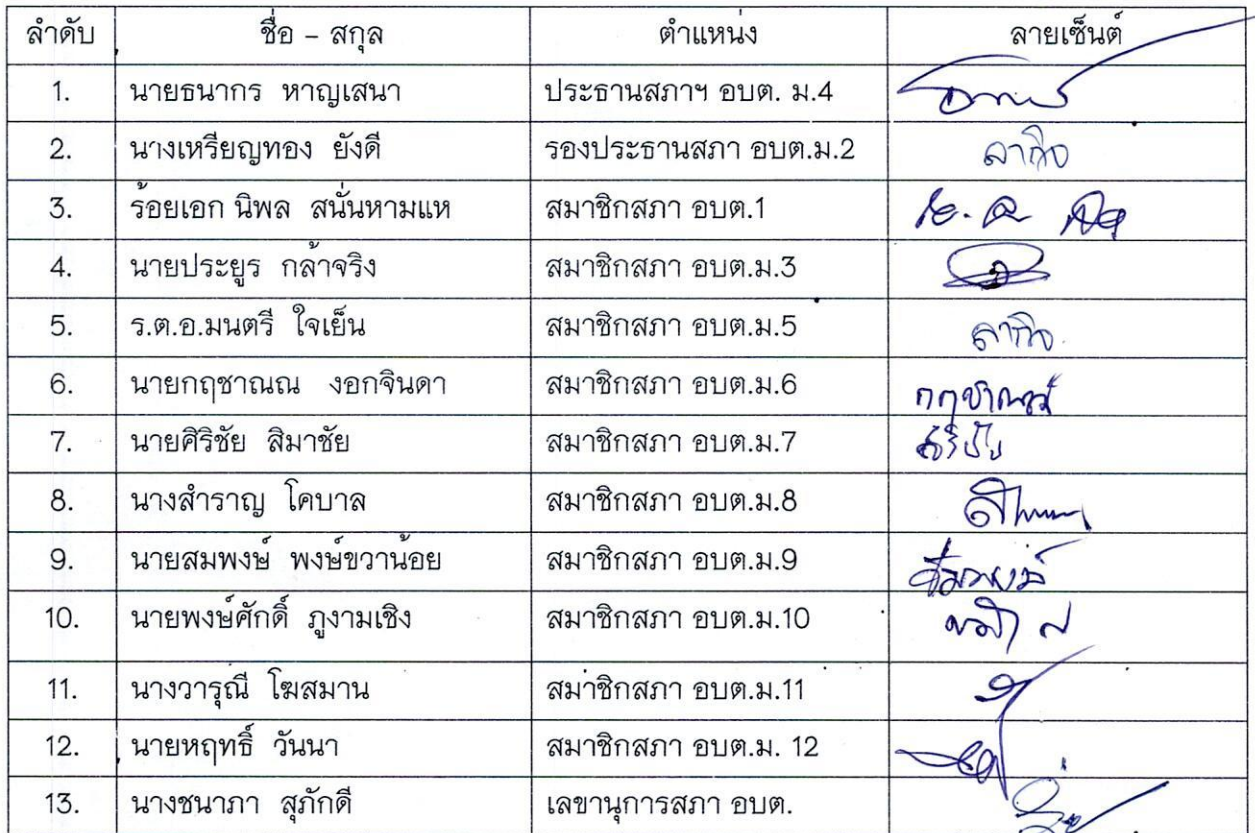 ลำดับ ชื่อ – สกุล ตำแหน่ง ลายเซ็นต์
1. นายธนากร หาญเสนา ประธานสภาฯ อบต. ม.4
2. นางเหรียญทอง ยังดี รองประธานสภา อบต.ม.2 ลากิจ
3. ร้อยเอก นิพล สนั่นหามแห สมาชิกสภา อบต.1
4. นายประยูร กล้าจริง สมาชิกสภา อบต.ม.3
5. ร.ต.อ.มนตรี ใจเย็น สมาชิกสภา อบต.ม.5 ลากิจ
6. นายกฤชาณณ งอกจินดา สมาชิกสภา อบต.ม.6
7. นายศิริชัย สิมาชัย สมาชิกสภา อบต.ม.7
8. นางสำราญ โคบาล สมาชิกสภา อบต.ม.8
9. นายสมพงษ์ พงษ์ขวาน้อย สมาชิกสภา อบต.ม.9
10. นายพงษ์ศักดิ์ ภูงามเชิง สมาชิกสภา อบต.ม.10
11. นางวารุณี โฆสมาน สมาชิกสภา อบต.ม.11
12. นายหฤทธิ์ วันนา สมาชิกสภา อบต.ม. 12
13. นางชนาภา สุภักดี เลขานุการสภา อบต.